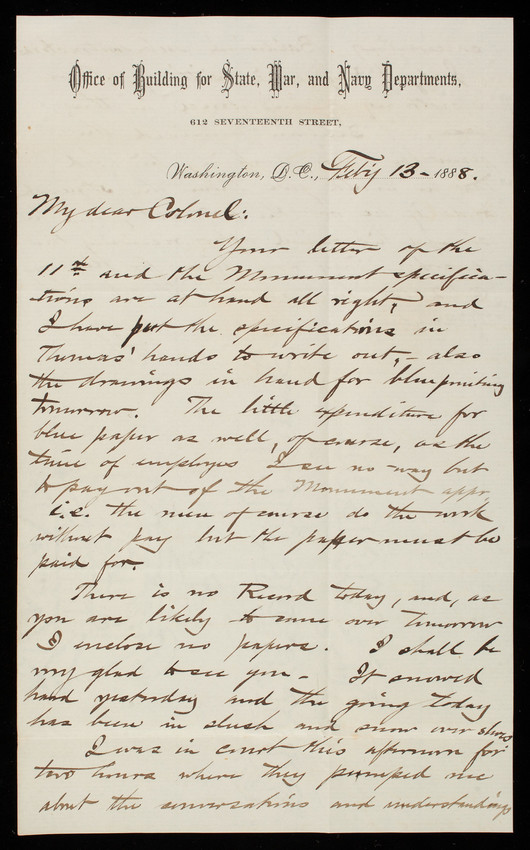 Office of Building for State, War, and Navy Departments,
612 SEVENTEENTH STREET,
Washington, D.C., Feb'y 13 - 1888.
My dear Colonel:
Your letter of the
11th and the Monument specifica-
tions are at hand all right, and
I have put the specifications in
Thomas' hands to write out, - also
the drawings in hand for blueprinting
tomorrow. The little expenditure for
blue paper as well, of course, as the
time of employes I see no way but
to pay out of the Monument appr.
i.e. the men of course do the work
without pay but the paper must be
paid for.
There is no Record today, and, as
you are likely to come over tomorrow
I enclose no papers. I shall be
very glad to see you - It snowed
hard yesterday and the going today
has been in slush and snow over shoes
I was in court this afternoon for
two hours where they pumped me
about the conversations and understandings